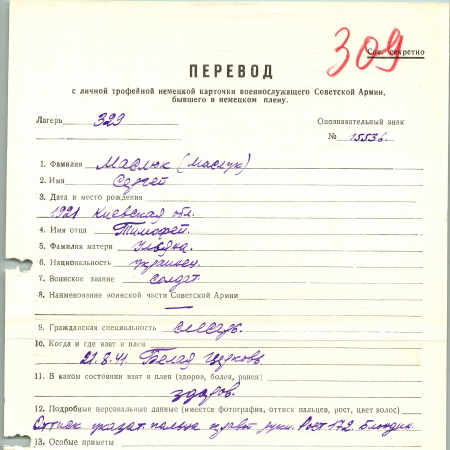 309
Сов. секретно
ПЕРЕВОД
с личной трофейной немецкой карточки военнослужащего Советской Армии,
бывшего в немецком плену.
Лагерь 329 Опознавательный знак
№ 15536.
1. Фамилия Маслюк (Маслук)
2. Имя Сергей
3. Дата и место рождения
1921 Киевская обл.
4. Имя отца Тимофей.
5. Фамилия матери Ульяна.
6. Национальность украинец.
7. Воинское звание солдат.
8. Наименование воинской части Советской Армии
—
9. Гражданская специальность слесарь.
10. Когда и где взят в плен
21.8.41 Белая Церковь.
11. В каком состоянии взят в плен (здоров, болен, ранен)
здоров.
12. Подробные персональные данные (имеется фотография, оттиск пальцев, рост, цвет волос)
Оттиск указат. пальца правой руки. Рост 172. Блондин.
13. Особые приметы